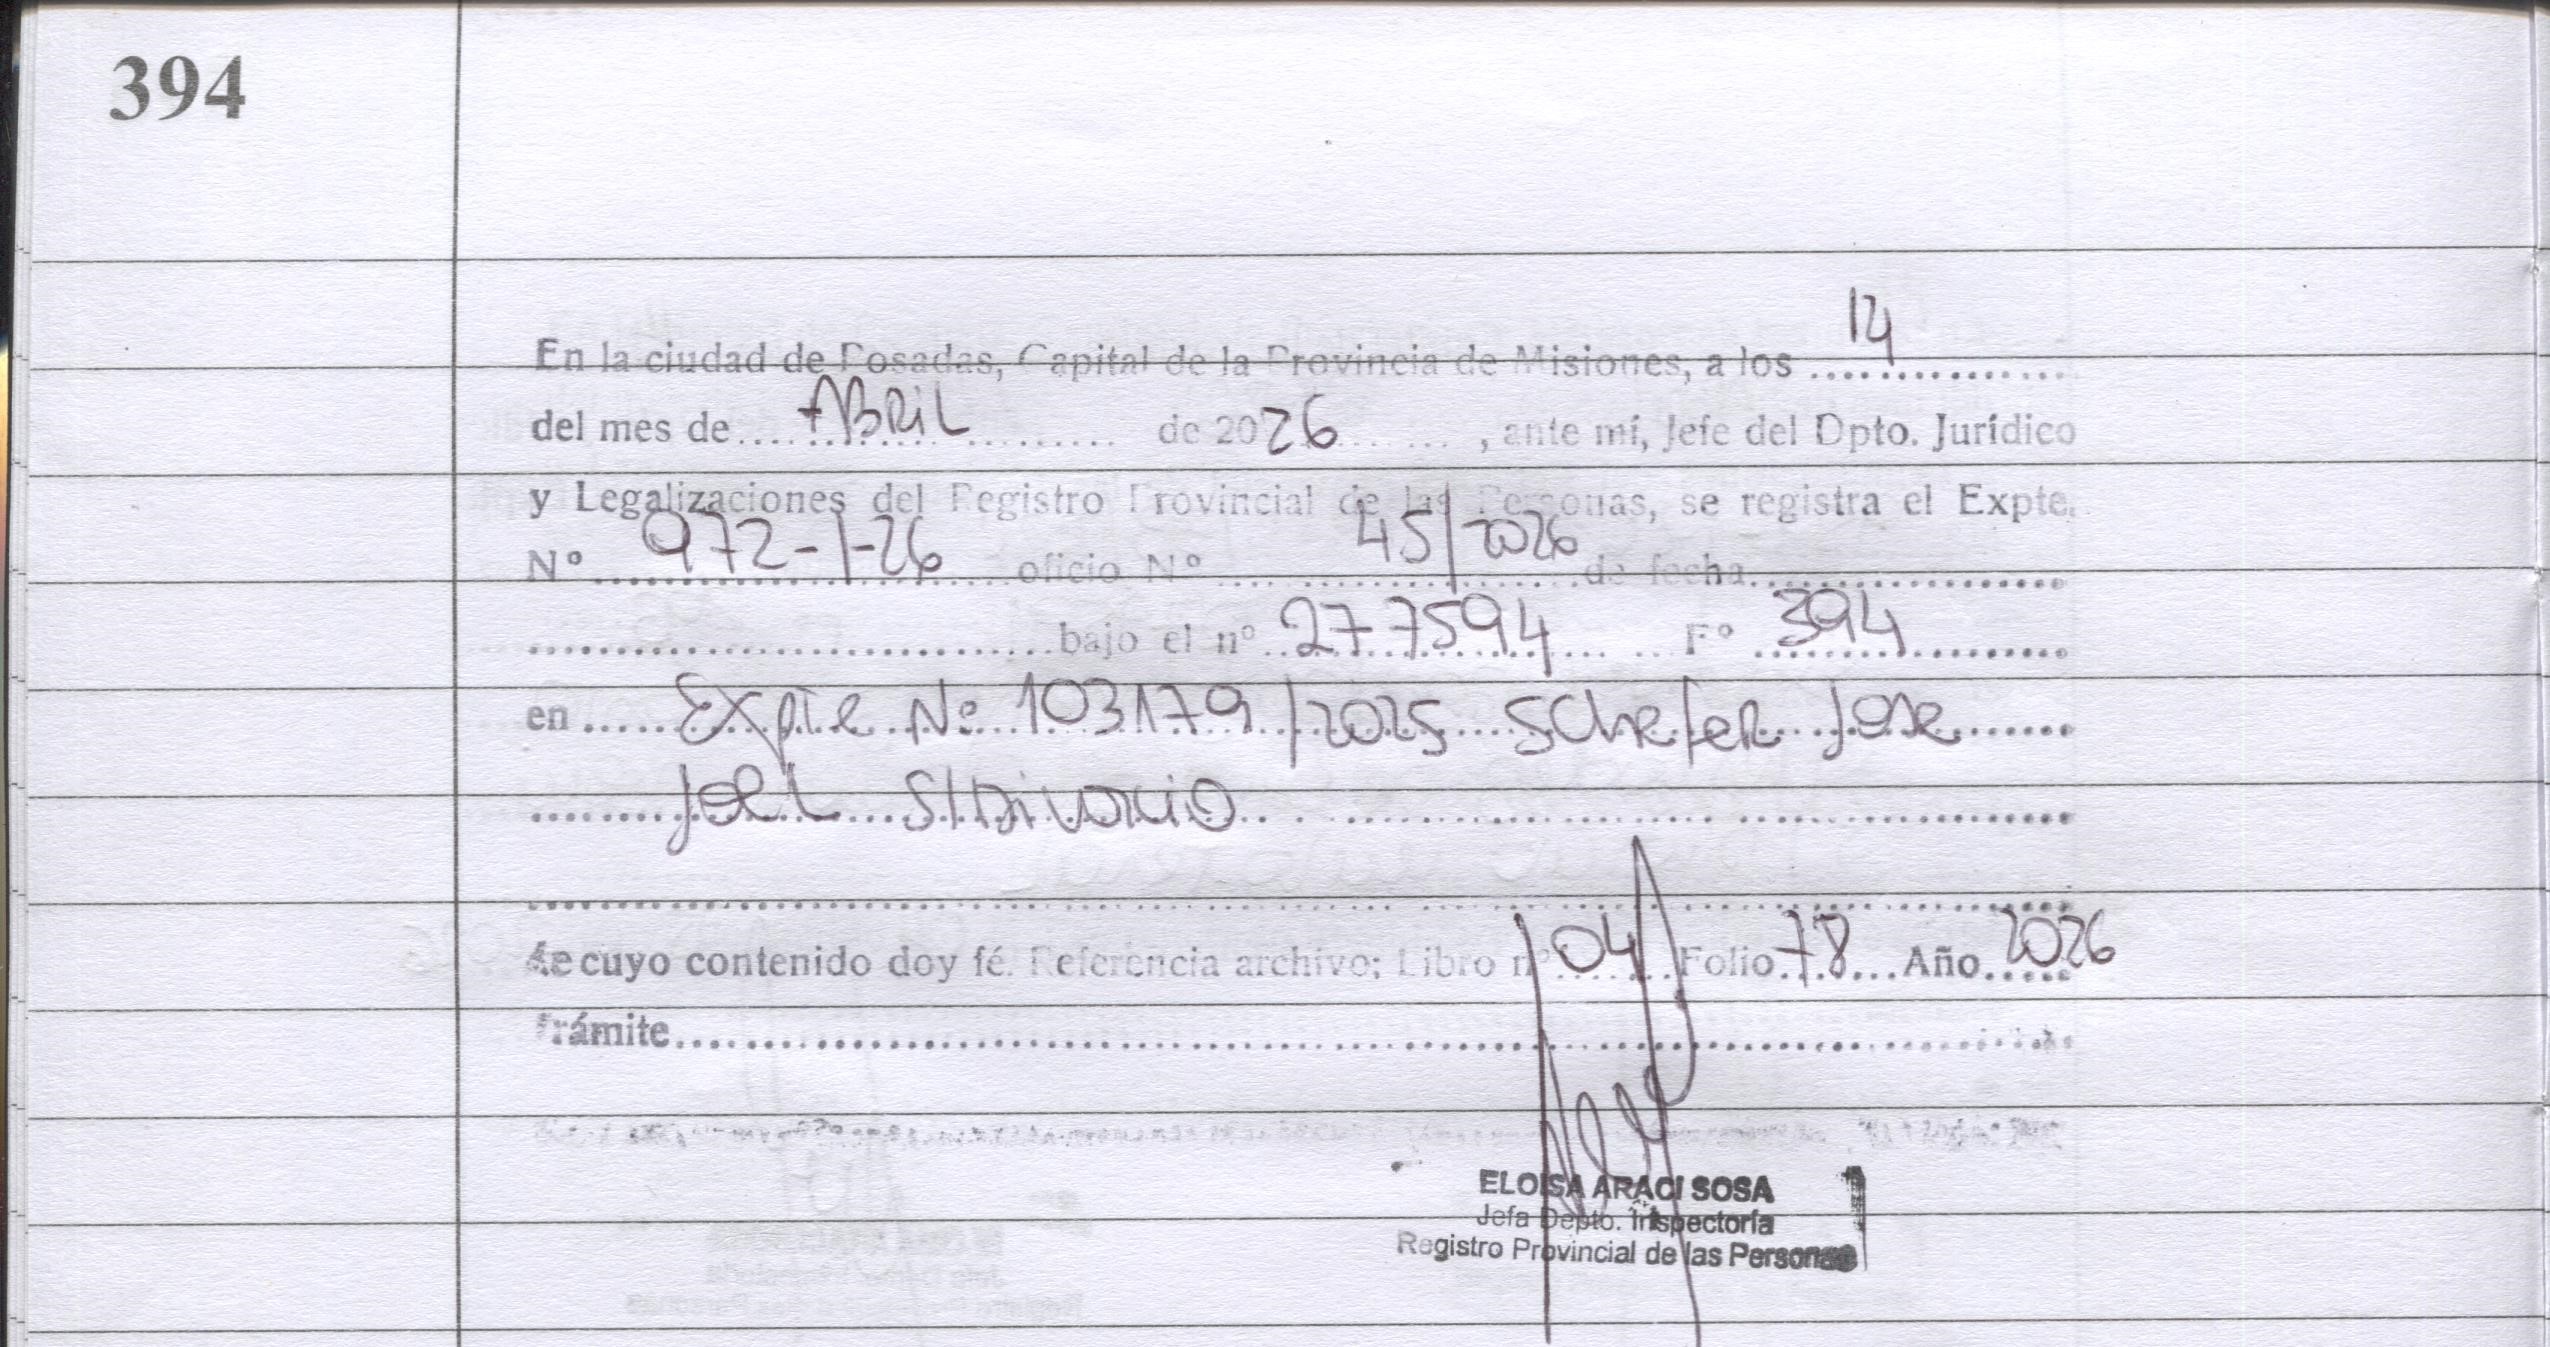 394
En la ciudad de Posadas, Capital de la Provincia de Misiones, a los 14
del mes de ABRIL de 2026, ante mí, Jefe del Dpto. Jurídico
y Legalizaciones del Registro Provincial de las Personas, se registra el Expte.
Nº 972-I-26 oficio Nº 45/2026 de fecha
bajo el nº 277594 Fº 394
en Expte Nº 103179/2025 Schefer Jose
Joel S/Divorcio
de cuyo contenido doy fé. Referencia archivo; Libro nº 04 Folio 78 Año 2026
Trámite
ELOISA ARACI SOSA
Jefa Depto. Inspectoría
Registro Provincial de las Personas